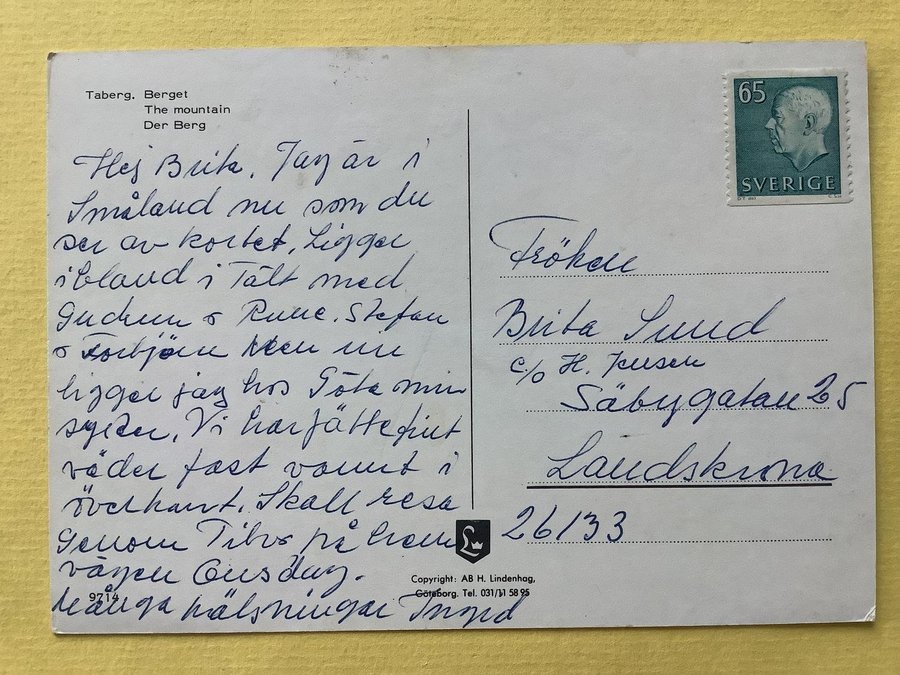 Taberg. Berget
The mountain
Der Berg
Hej Brita. Jag är i
Småland nu som du
ser av kortet. Ligger
ibland i Tält med
Gudrun o Rune. Stefan
o Torbjörn Men nu
ligger jag hos Göta min
syster. Vi har jättefint
väder fast varmt i
överkant. Skall resa
genom Tibro på hem
vägen Onsdag.
Många hälsningar Ingrid
9714
65
SVERIGE
Fröken
Brita Sund
c/o H. Jensen
Säbygatan 25
Landskrona
26133
Copyright: AB H. Lindenhag,
Göteborg. Tel. 031/11 58 95